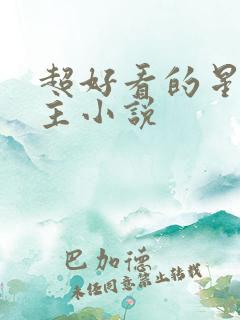 超好看的星
主小说
巴加德
未经同意禁止转载